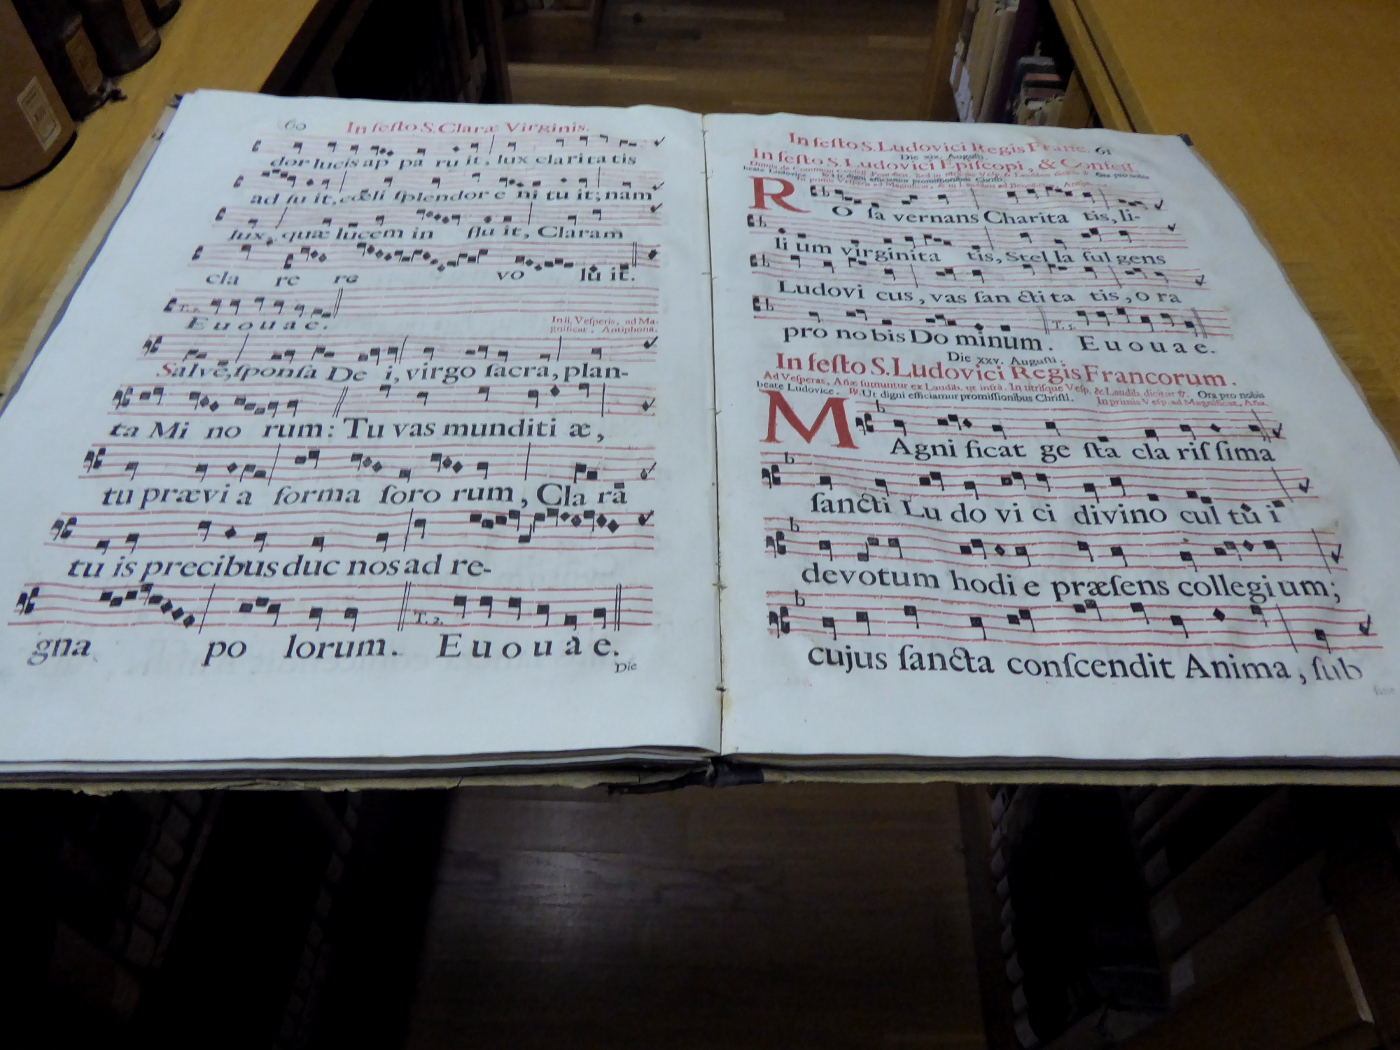 60 In festo S. Claræ Virginis.
dor lucis ap pa ru it, lux clari ta tis
ad fu it, cœli ſplendor e ni tu it; nam
lux, quæ lucem in flu it, Claram
cla re re vo lu it.
E u o u a e.
In ii. Veſperis, ad Ma-
gnificat, Antiphona.
Salve, ſponſa De i, virgo ſacra, plan-
ta Mi no rum: Tu vas munditi æ,
tu prævi a forma ſoro rum, Cla ra
tu is precibus duc nos ad re-
gna po lorum. T. 2. E u o u a e.
Die
In feſto S. Ludovici Regis Franc. 61
Die xix. Auguſti.
In feſto S. Ludovici Epiſcopi, & Confeſſ.
RO ſa vernans Charita tis, li-
li um virginita tis, Stel la ful gens
Ludovi cus, vas ſan cti ta tis, o ra
pro no bis Do minum. E u o u a e.
Die xxv. Auguſti.
In feſto S. Ludovici Regis Francorum.
Ad Veſperas, Añæ ſumuntur ex Laudib. ut infrà. In utriſque Veſp. & Laudib. dicitur ℣. Ora pro nobis
beate Ludovice. ℟. Ut digni efficiamur promiſſionibus Chriſti. In primis Veſp. ad Magnificat, Aña.
MAgni ficat ge ſta cla riſ ſima
ſancti Lu do vi ci divino cul tù i
devotum hodi e præſens collegi um;
cujus ſancta conſcendit Anima, ſub